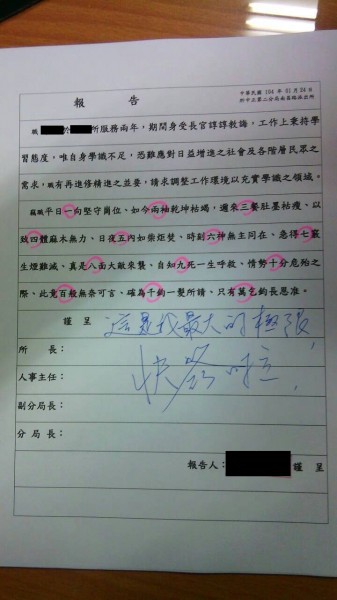 報 告
中華民國 104 年 01 月 24 日
於中正第二分局南昌路派出所
職 於 所服務兩年，期間身受長官諄諄教誨，工作上秉持學
習態度，唯自身學識不足，恐難應對日益增進之社會及各階層民眾之
需求，職有再進修精進之並要，請求調整工作環境以充實學識之領域。
竊職平日一向堅守崗位、如今兩袖乾坤枯竭、邇來三餐肚墨枯瘦、以
致四體麻木無力、日夜五內如柴炬焚、時刻六神無主同在、急得七竅
生煙難滅、真是八面大敵來襲、自知九死一生呼救、情勢十分危殆之
際、此竟百般無奈可言、確為千鈞一髮所請、只有萬乞鈞長恩准。
謹 呈
這是我最大的極限，
快簽啦！
所 長：
人事主任：
副分局長：
分 局 長：
報告人： 謹 呈